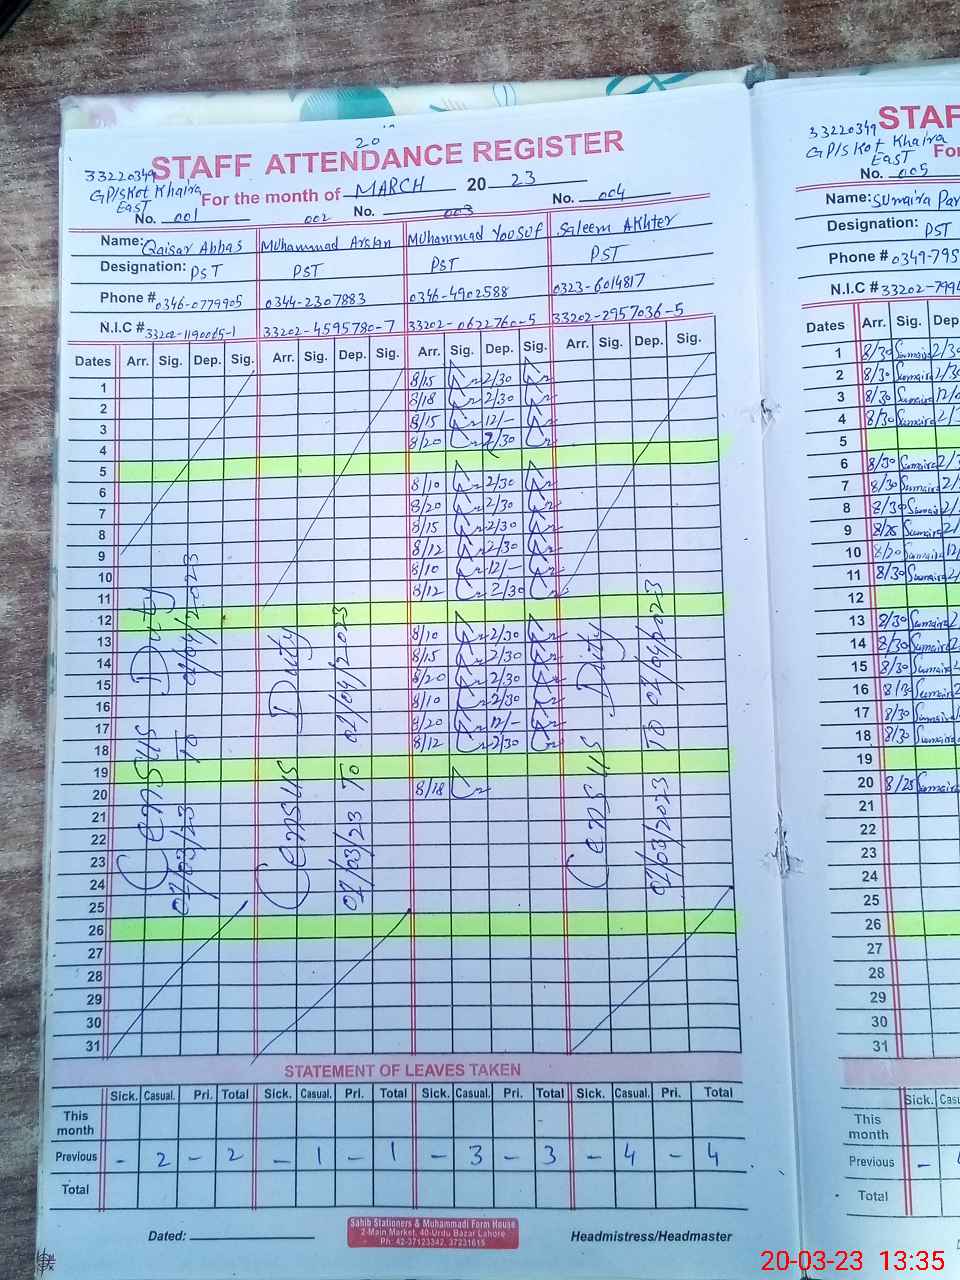 20
33220349 STAFF ATTENDANCE REGISTER
GP/S Kot Khaira East For the month of MARCH 20 23
No. 001 002 No. 003 No. 004
Name: Qaisar Abbas Muhammad Arslan Muhammad Yousuf Saleem Akhter
Designation: PST PST PST PST
Phone # 0346-0779905 0344-2307883 0346-4902588 0323-6014817
N.I.C # 33202-1190065-1 33202-4595780-7 33202-0622760-5 33202-2957036-5
Dates Arr. Sig. Dep. Sig. Arr. Sig. Dep. Sig. Arr. Sig. Dep. Sig. Arr. Sig. Dep. Sig.
1 8/15 2/30
2 8/18 2/30
3 8/15 12/-
4 8/20 2/30
5
6 8/10 2/30
7 8/20 2/30
8 8/15 2/30
9 8/12 2/30
10 8/10 12/-
11 8/12 2/30
12
13 8/10 2/30
14 8/15 2/30
15 8/20 2/30
16 8/10 2/30
17 8/20 12/-
18 8/12 2/30
19
20 8/18
21
22
23
24
25
26
27
28
29
30
31
Census Duty
01/03/23 To 01/04/2023
Census Duty
01/03/23 To 01/04/2023
Census Duty
01/03/2023 To 01/04/2023
STATEMENT OF LEAVES TAKEN
Sick. Casual. Pri. Total Sick. Casual. Pri. Total Sick. Casual. Pri. Total Sick. Casual. Pri. Total
This month
Previous - 2 - 2 - 1 - 1 - 3 - 3 - 4 - 4
Total
Dated:
Sahib Stationers & Muhammadi Form House
2-Main Market, 40-Urdu Bazar Lahore
Ph: 42-37123342, 37231615
Headmistress/Headmaster
33220349 STAF
GP/S Kot Khaira East Fo
No. 005
Name: Sumaira Par
Designation: PST
Phone # 0349-795
N.I.C # 33202-7994
Dates Arr. Sig. Dep
1 8/30 Sumaira 2/30
2 8/30 Sumaira 2/30
3 8/30 Sumaira 12/
4 8/30 Sumaira 2/
5
6 8/30 Sumaira 2/
7 8/30 Sumaira 2/
8 8/30 Sumaira 2/
9 8/25 Sumaira 2/
10 8/20 Sumaira 12/
11 8/30 Sumaira 2/
12
13 8/30 Sumaira 2
14 8/30 Sumaira 2
15 8/30 Sumaira 2
16 8/30 Sumaira 2
17 8/30 Sumaira
18 8/30 Sumaira
19
20 8/25 Sumaira
21
22
23
24
25
26
27
28
29
30
31
Sick. Casu
This month
Previous -
Total
20-03-23 13:35